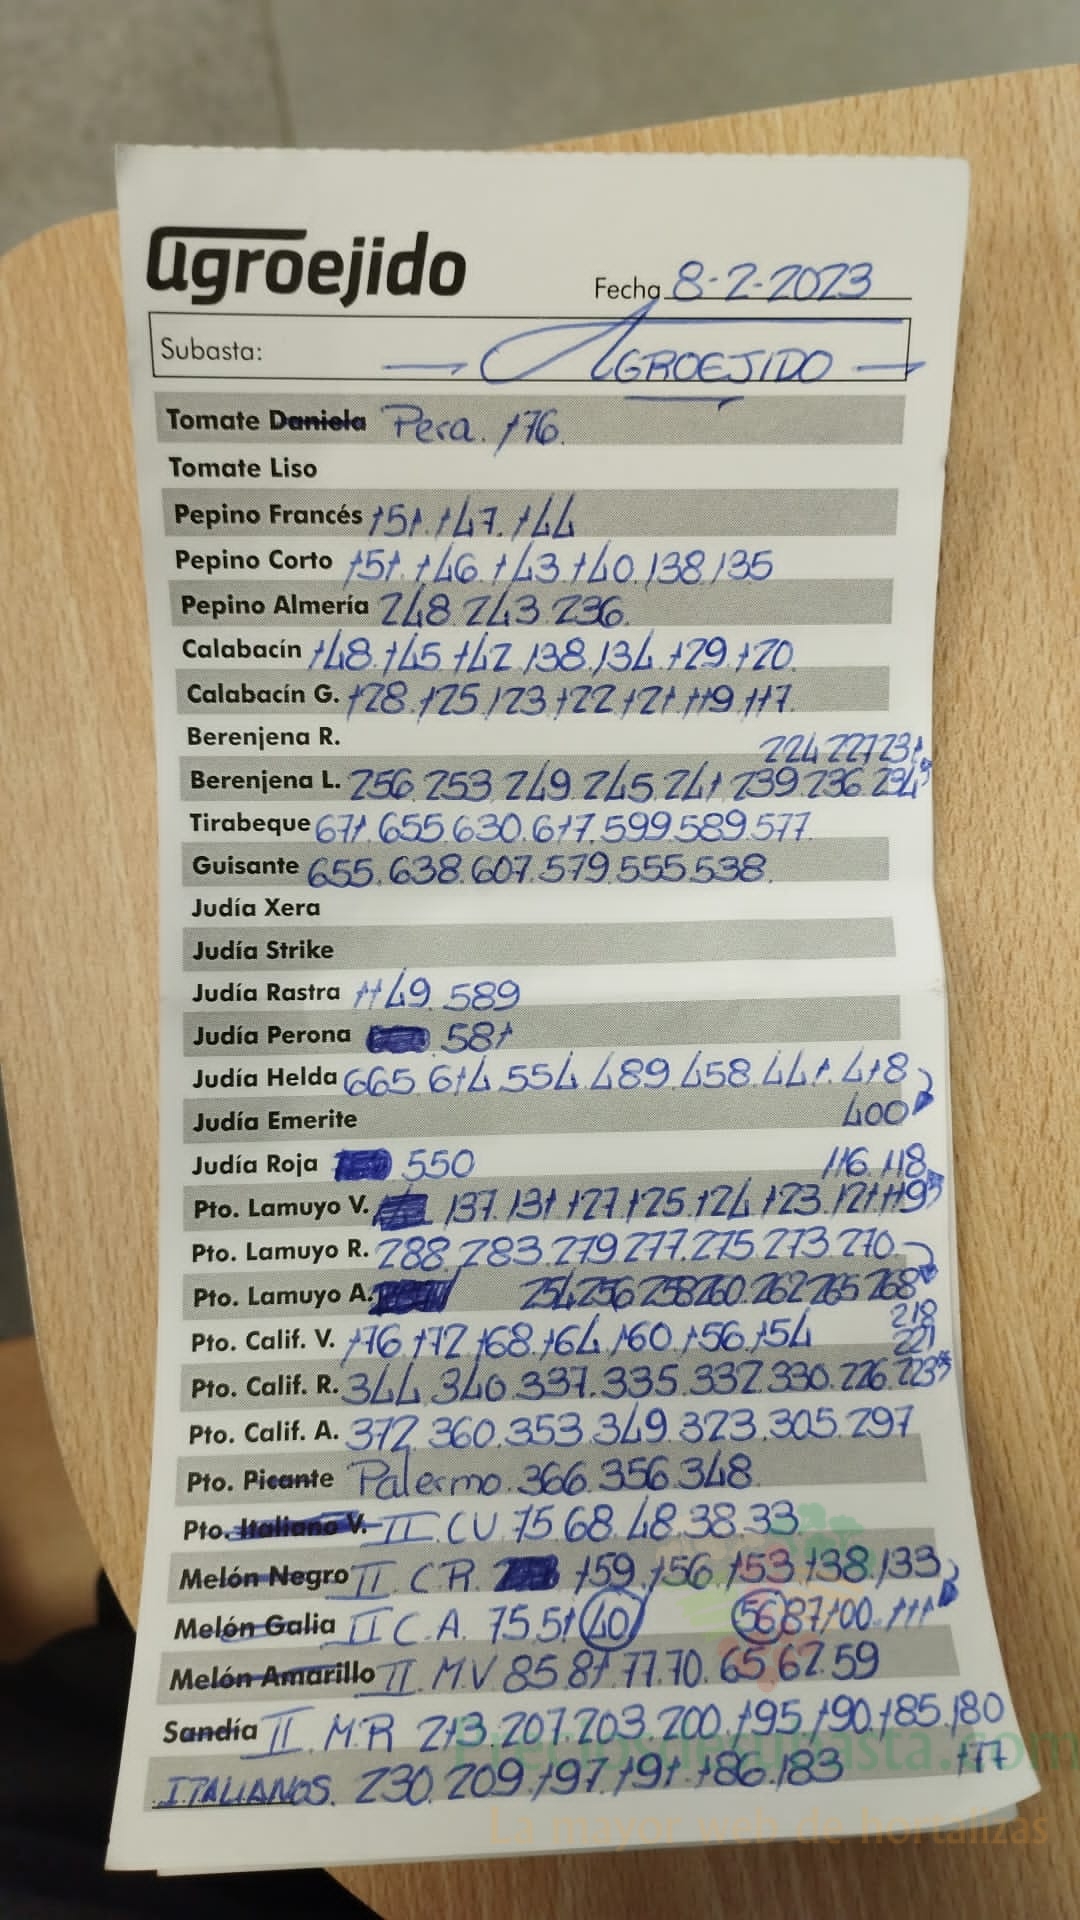 agroejido
Fecha 8-2-2023
Subasta: AGROEJIDO
Tomate Daniela Pera. 176.
Tomate Liso
Pepino Francés 151. 147. 144
Pepino Corto 151. 146. 143 140. 138. 135
Pepino Almería 248. 243. 236.
Calabacín 148. 145 142 138. 134 129 120.
Calabacín G. 128. 125 123 122 121 119 117.
Berenjena R.
224 227 231
Berenjena L. 256. 253. 249. 245. 241 239. 236. 234
Tirabeque 671. 655. 630. 617. 599. 589. 577.
Guisante 655. 638. 607. 579. 555. 538.
Judía Xera
Judía Strike
Judía Rastra 1149. 589
Judía Perona 581
Judía Helda 665. 614. 554. 489. 458. 441. 418
Judía Emerite 400
Judía Roja 550
116. 118
Pto. Lamuyo V. 137. 131 127 125. 124 123. 121 119
Pto. Lamuyo R. 288. 283. 279. 277. 275. 273. 270
Pto. Lamuyo A. 254 256 258 260. 262 265 268
218
Pto. Calif. V. 176. 172 168. 164 160. 156. 154
221
Pto. Calif. R. 344. 340. 337. 335. 332. 330. 226. 223
Pto. Calif. A. 372. 360. 353. 349. 323. 305. 297
Pto. Picante Palermo. 366. 356. 348.
Pto. Italiano V. II. CV 75 68. 48. 38. 33.
Melón Negro II. C.R. 159. 156. 153 138. 133
Melón Galia II C.A. 75. 51 40 56 87 100. 111
Melón Amarillo II. M.V 85. 81 77. 70. 65. 62. 59
Sandía II. M.R 213. 207. 203. 200. 195. 190. 185. 180
177
ITALIANOS. 230. 209. 197. 191. 186. 183
La mayor web de hortalizas